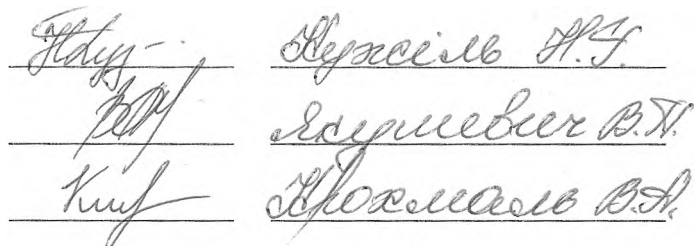 Кужіль Н.Г.
Якумевич В.П.
Крохмаль В.А.